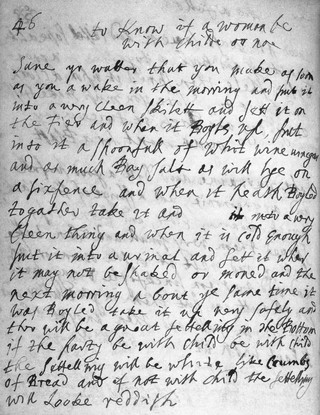 46
to Know if a woman be
with childe or noe
Save yr watter that you make as soon
as you awake in the morning and put it
into a very cleen skilett and sett it on
the fier and when it Boyls, up, put
into it a spoonfull of whit wine vineger
and as much Bay salt as will lye on
a sixpence and when it heath Boyled
togather take it and it into a very
cleen thing and when it is cold Enough
put it into a urinal and sett it wher
it may not be shaked or moned and the
next morning a bout ye same time it
was Boyled take it up very safely and
ther will be a great settelling in the Bottom
if the party be with child be with child
the settelling will be white like Crumbs
of Bread and if not with child the settelling
will Looke reddish